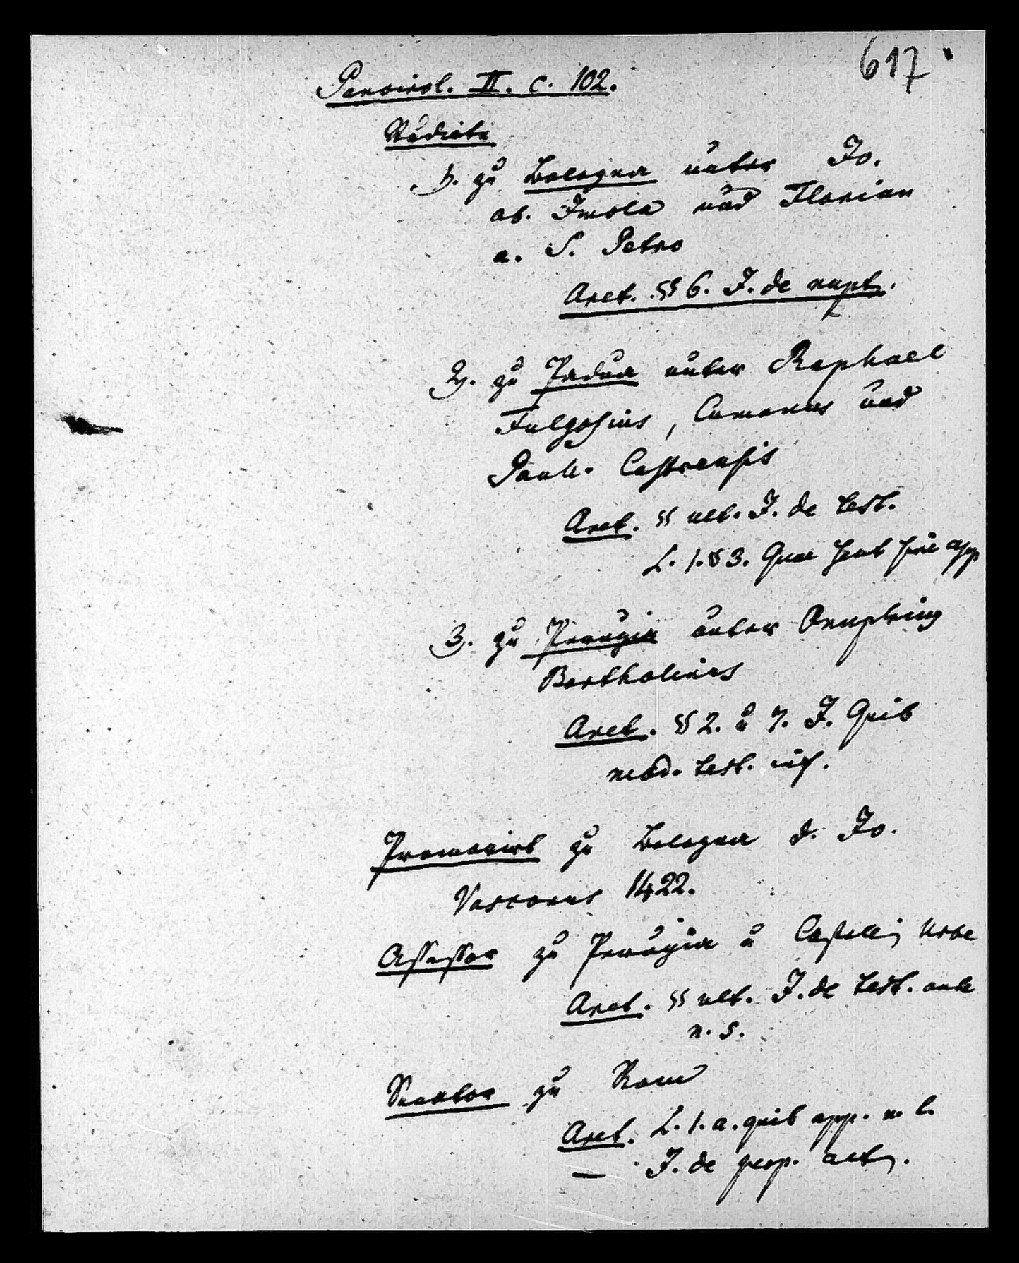 617
Pancirol. II. c. 102.
Studirte
1. zu Bologna unter Jo.
ab. Imola und Florian
a. S. Petro
Aret. §§ 6. J. de nupt.
2. zu Padua unter Raphael
Fulgosius, Cumanus und
Paul. Castrensis
Aret. §§ ult. J. de test.
L. 1. § 3. Quae sent sine app
3. zu Perugia unter Onuphrius
Bartholinus
Aret. §§ 2. u 7. J. Quib
mod. test. inf.
Promovirt zu Bologna d. Jo.
Vasconus 1422.
Assessor zu Perugia u Castelli urbe
Aret. §§ ult. J. de test. ante
n. 5.
Senator zu Rom
Aret. L. 1. a. quib app. n l.
— J. de perp. act.